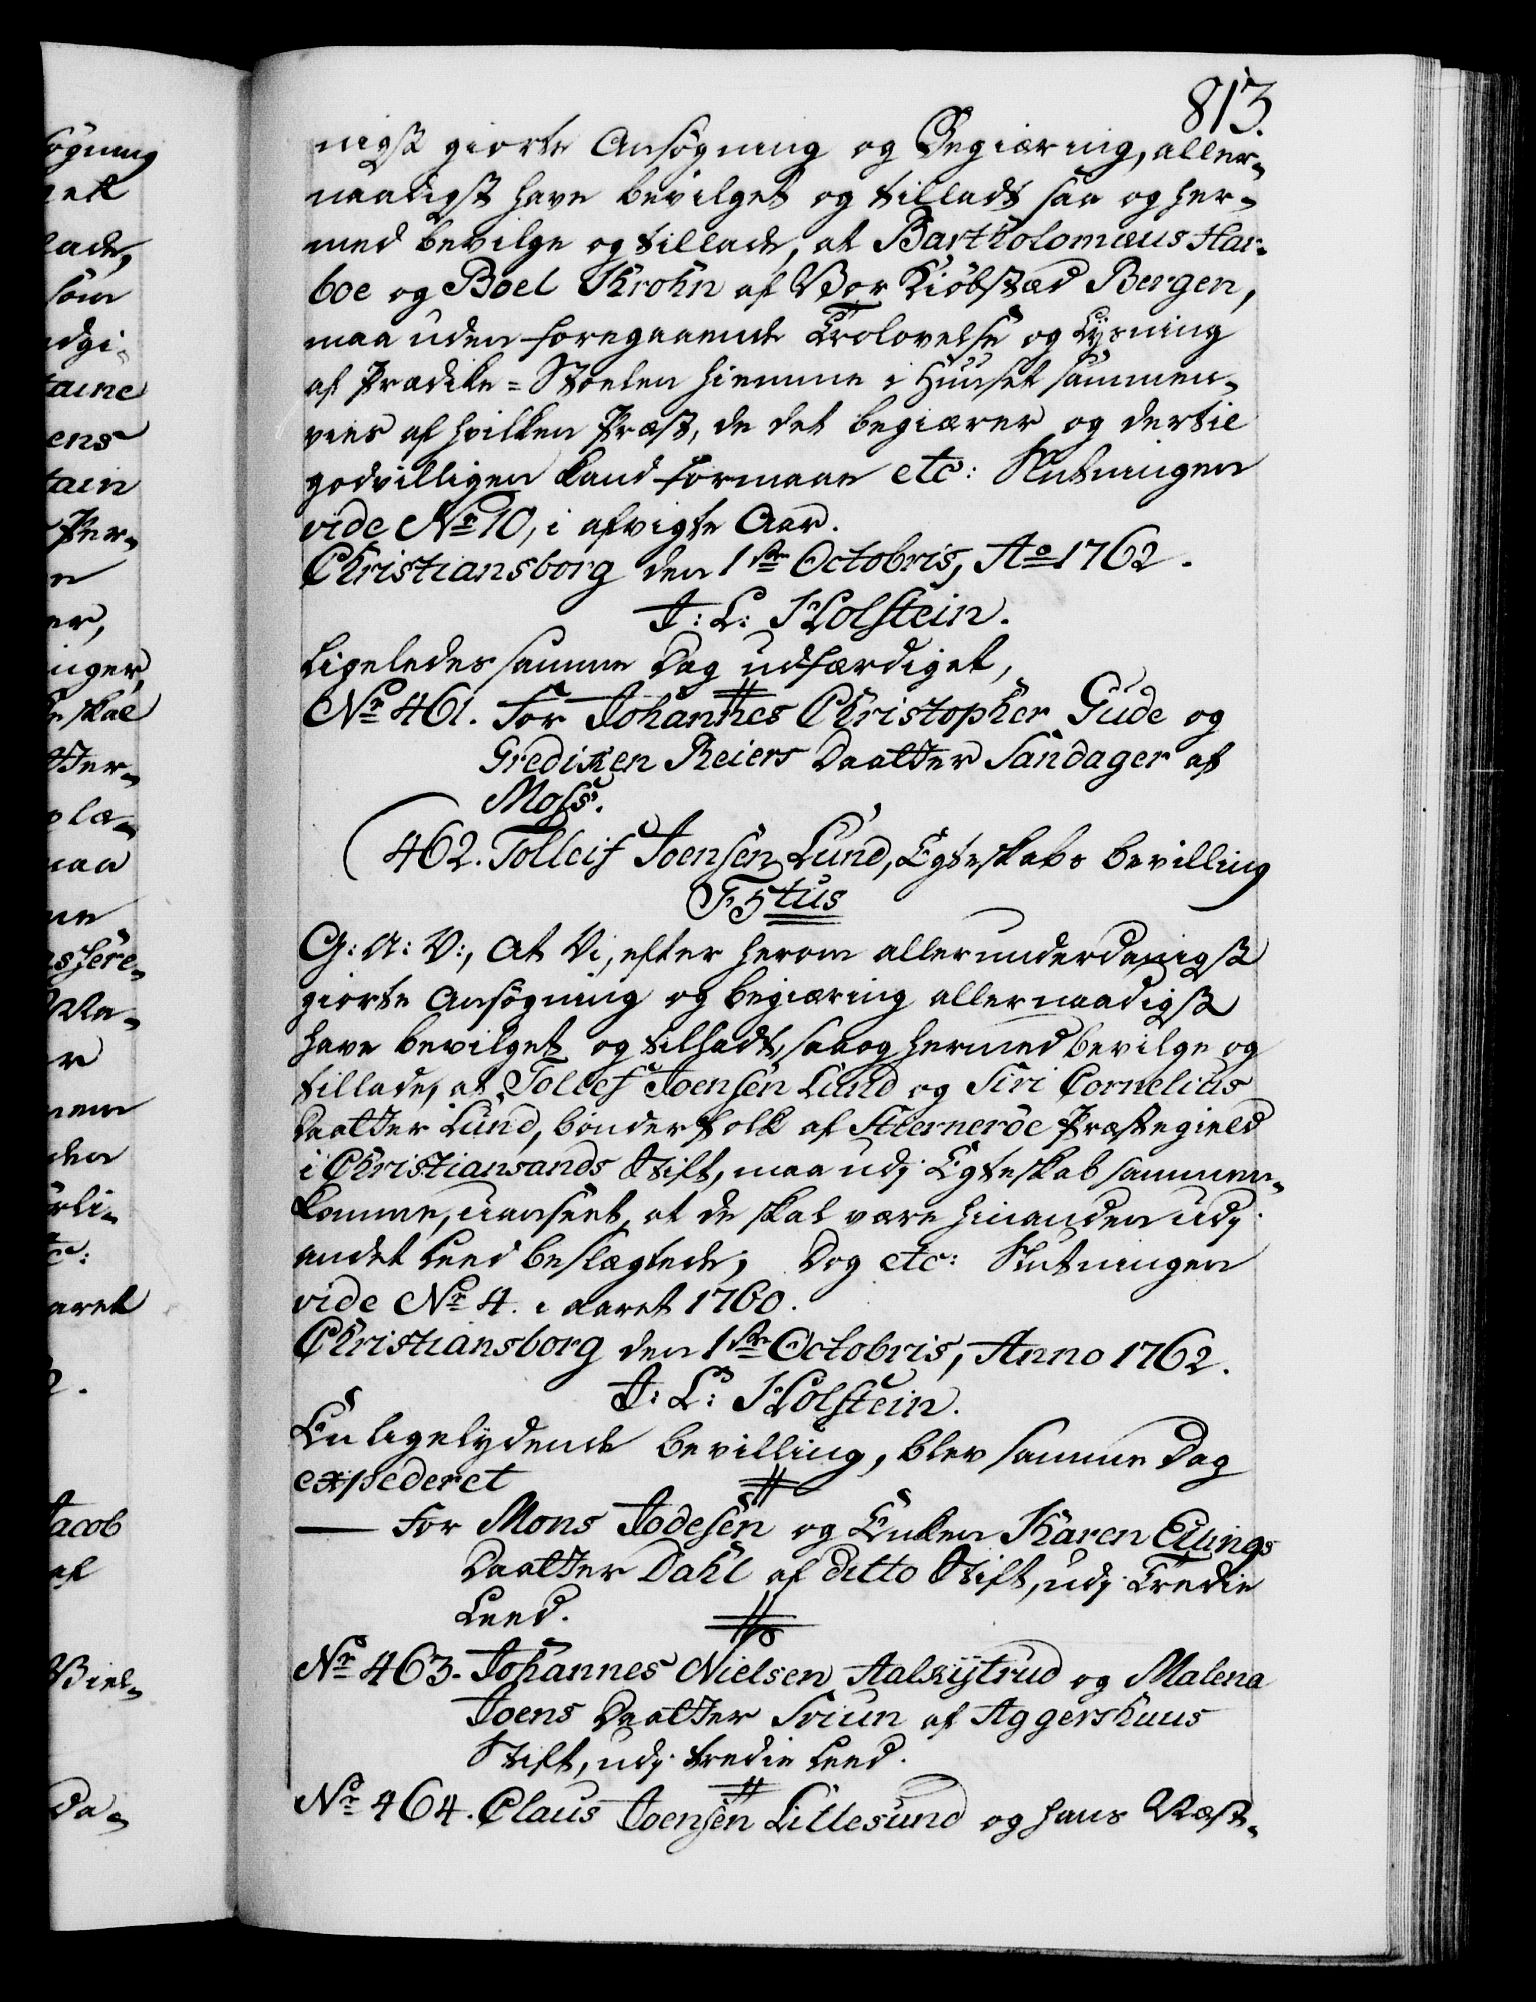 813.
nigst giorte Ansøgning og Begiæring, aller-
naadigst have bevilget og tilladt saa og her-
med bevilge og tillade, at Bartholomæus Har-
boe og Boel Krohn af Vor Kiøbstæd Bergen,
maa uden foregaaende Trolovelse og Lysning
af Prædike-Stoelen hiemme i Huuset sammen-
vies af hvilken Præst, de det begiærer og dertil
godvilligen kand formaae etc: Slutningen
vide No. 10, i afvigte Aar.
Christiansborg den 1ste Octobris, Ao 1762.
J: L: Holstein.
Ligeledes samme Dag udfærdiget,
No. 461. For Johannes Christopher Gude og
Gredixen Reiers Daatter Sandager af
Moss.
462. Tolleif Joensen Lund, Egteskabs bevilling
F5tus
G: A: V:, At Vi, efter herom allerunderdanigst
giorte Ansøgning og begiæring allernaadigst
have bevilget og tilladt, saa og hermed bevilge og
tillade, at Tollef Joensen Lund og Siri Cornelius
Daatter Lund, bønder folk af Stiernerøe Præstegield
i Christiansands Stift, maa udj Egteskab sammen-
komme, uanseet, at de skal være hinanden udj
andet Leed beslægtede; Dog etc: Slutningen
vide No. 4. i aaret 1760.
Christiansborg den 1ste Octobris, Anno 1762.
J: L: Holstein.
En ligelydende bevilling, blev samme Dag
expederet
For Mons Jodesen og Enken Karen Ellings
Daatter Dahl af ditto Stift, udj Tredie
Leed.
No. 463. Johannes Nielsen Aalkijtrud og Malena
Joens Daatter Sriun af Aggershuus
Stift, udj tredie Leed.
No. 464. Claus Joensen Lillesund og hans Næst-